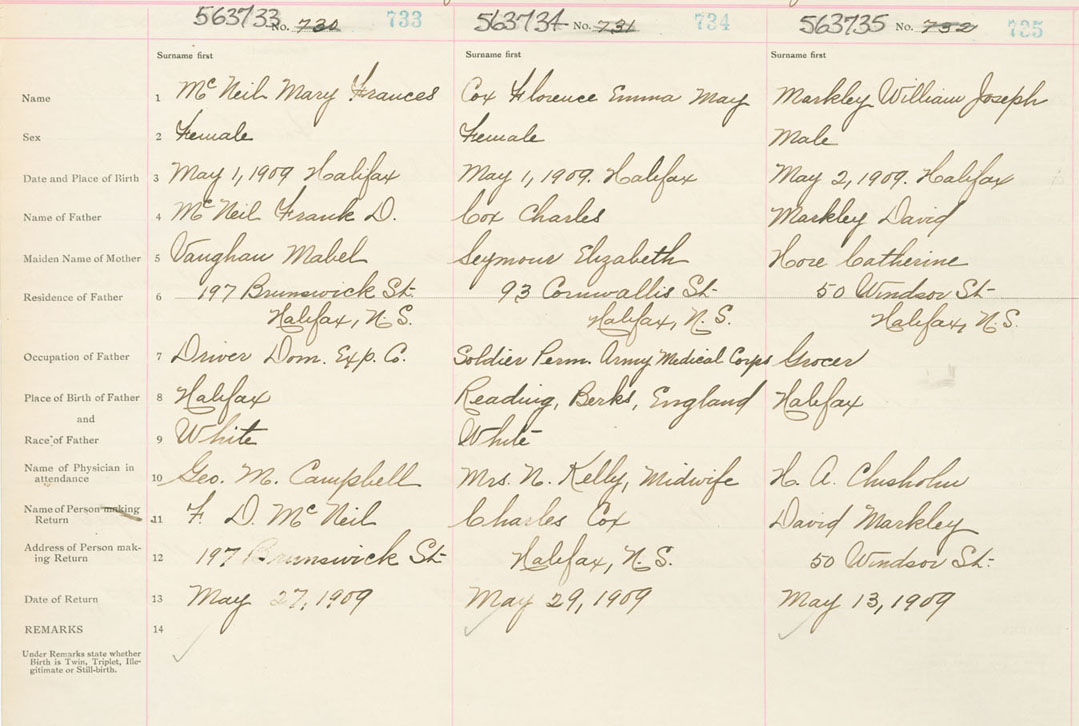 563733 No. 730 733 563734 No. 731 734 563735 No. 732 735
Surname first Surname first Surname first
Name 1 McNeil Mary Frances Cox Florence Emma May Markley William Joseph
Sex 2 Female Female Male
Date and Place of Birth 3 May 1, 1909 Halifax May 1, 1909. Halifax May 2, 1909. Halifax
Name of Father 4 McNeil Frank D. Cox Charles Markley David
Maiden Name of Mother 5 Vaughan Mabel Seymour Elizabeth Hore Catherine
Residence of Father 6 197 Brunswick St. 93 Cornwallis St. 50 Windsor St.
Halifax, N.S. Halifax, N.S. Halifax, N.S.
Occupation of Father 7 Driver Dom. Exp. Co. Soldier Perm. Army Medical Corps Grocer
Place of Birth of Father 8 Halifax Reading, Berks, England Halifax
and
Race of Father 9 White White
Name of Physician in
attendance 10 Geo. M. Campbell Mrs. N. Kelly, Midwife H. A. Chisholm
Name of Person making
Return 11 F. D. McNeil Charles Cox David Markley
Address of Person mak-
ing Return 12 197 Brunswick St. Halifax, N.S. 50 Windsor St.
Date of Return 13 May 27, 1909 May 29, 1909 May 13, 1909
REMARKS 14
Under Remarks state whether
Birth is Twin, Triplet, Ille-
gitimate or Still-birth.